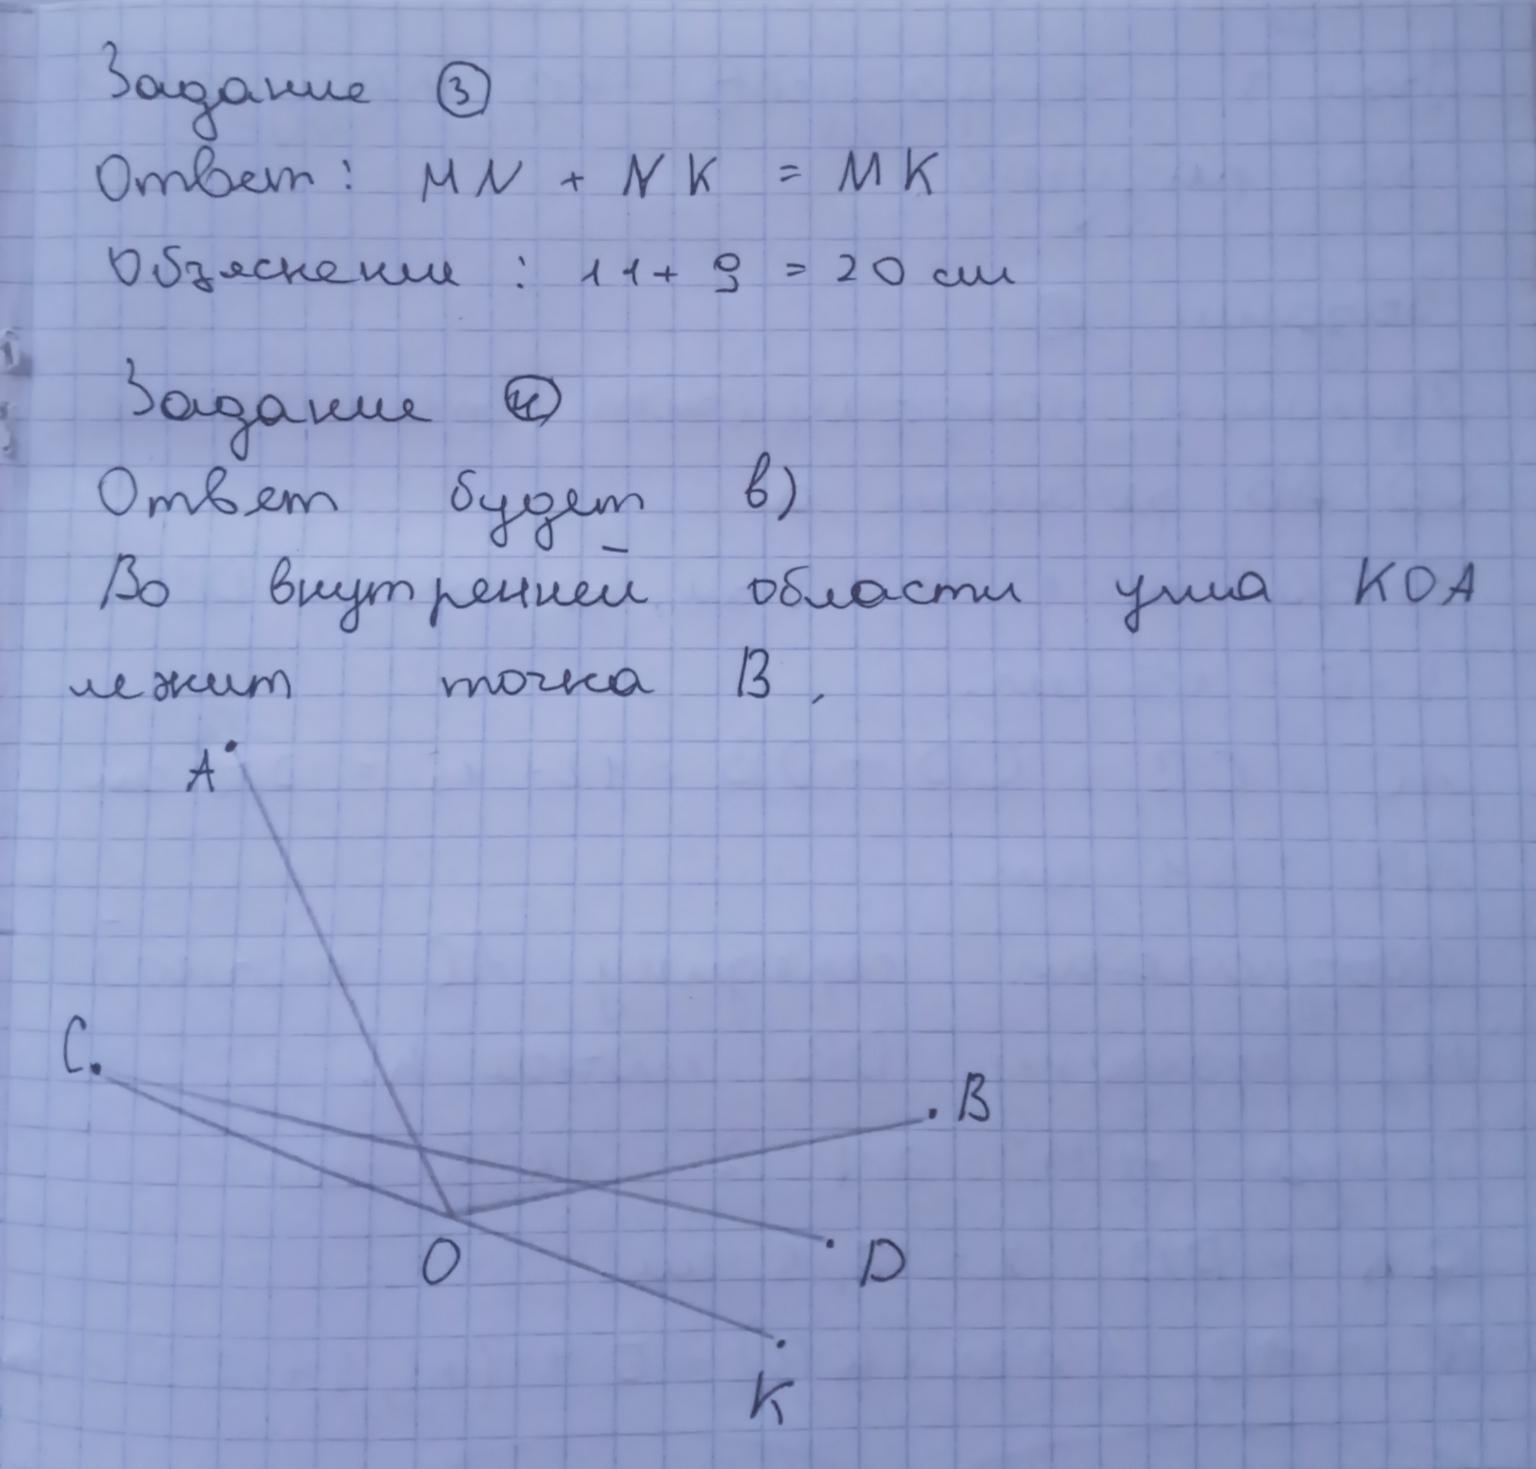 Задание 3
Ответ: MN + NK = MK
Объяснение: 11 + 9 = 20 см
Задание 4
Ответ будет в)
Во внутренней области угла KOA
лежит точка B.
A
C
B
O
D
K